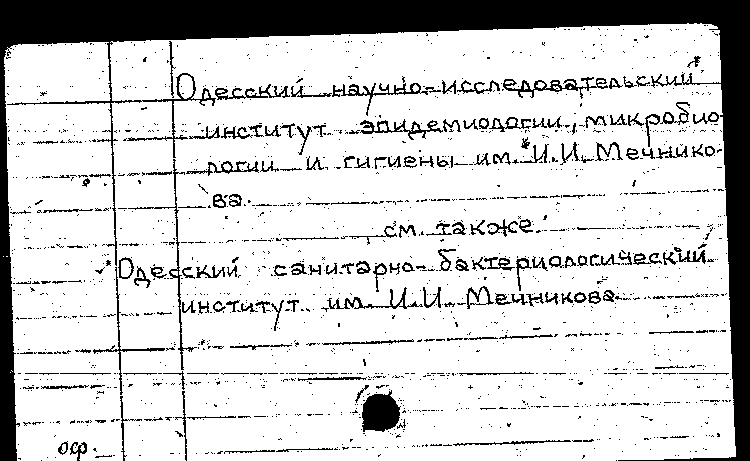 Одесский научно-исследовательский
институт эпидемиологии, микробио-
логии и гигиены им. И.И. Мечнико-
ва.
см. также
Одесский санитарно-бактериологический
институт им. И.И. Мечникова.
оср.